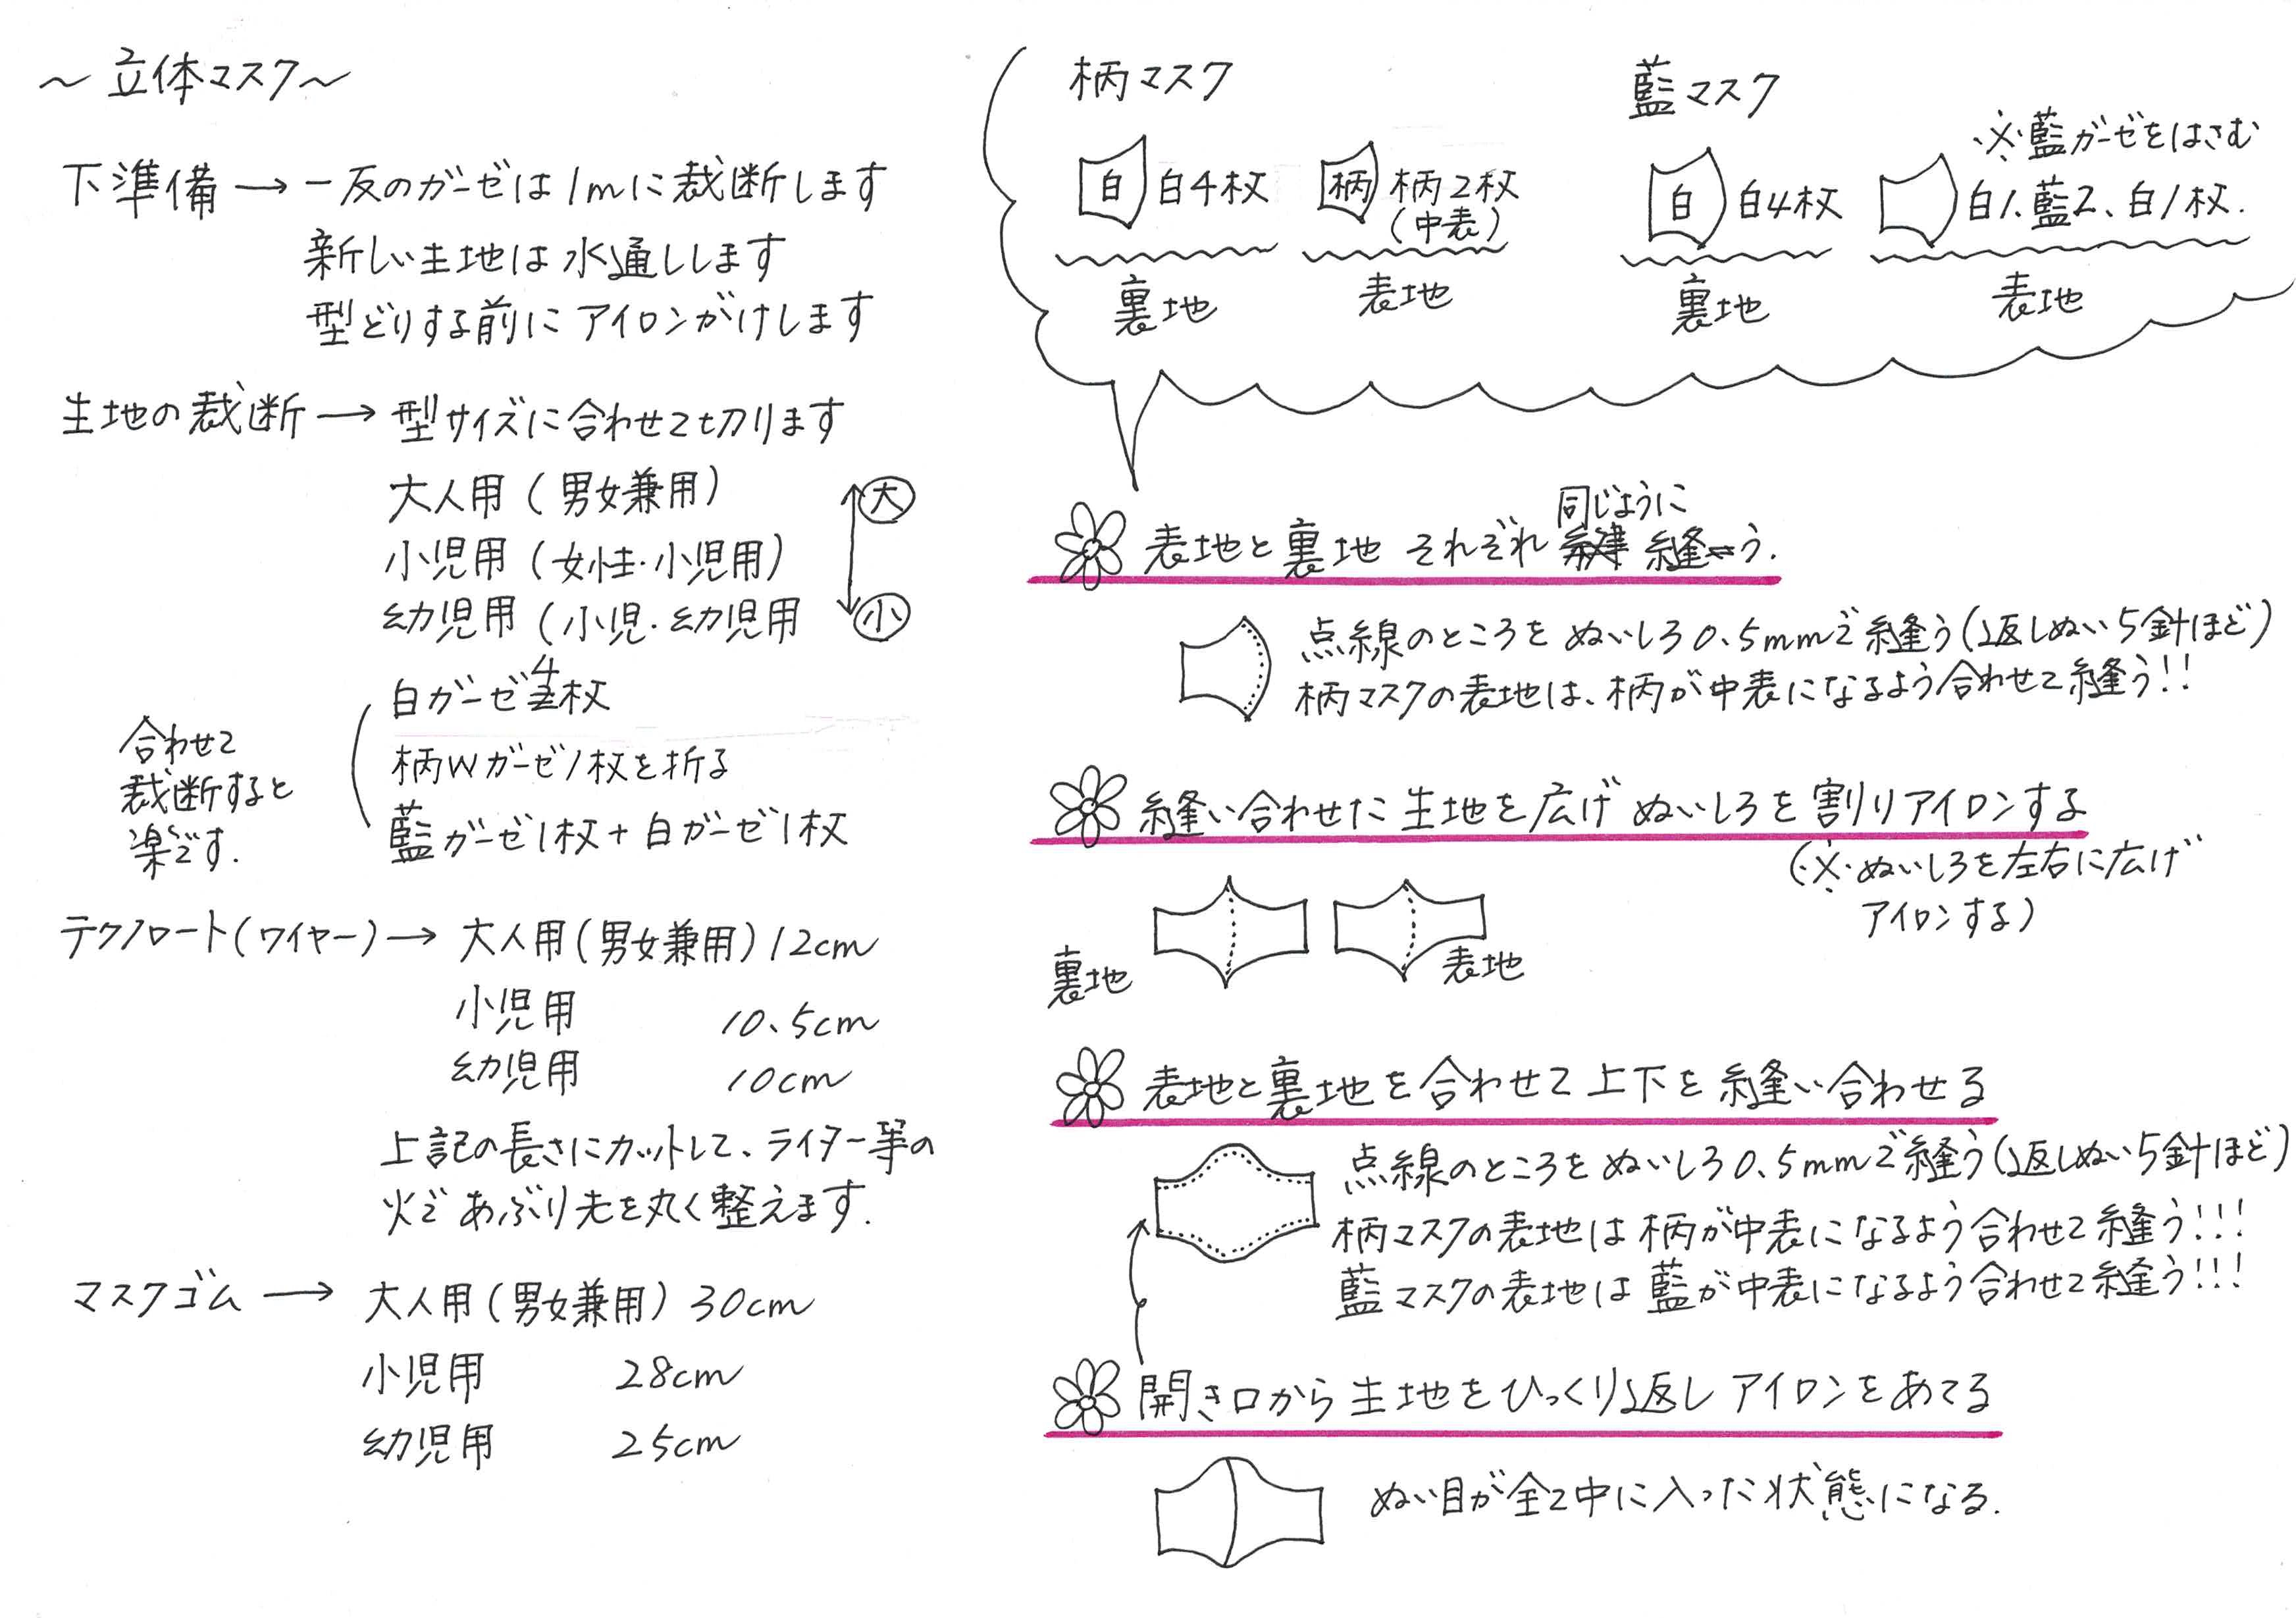 ～立体マスク～
下準備→一反のガーゼは1mに裁断します
新しい生地は水通しします
型どりする前にアイロンがけします
生地の裁断→型サイズに合わせて切ります
大人用(男女兼用)
小児用(女性・小児用)
幼児用(小児・幼児用
大
小
白ガーゼ4枚
柄Wガーゼ1枚を折る
藍ガーゼ1枚+白ガーゼ1枚
合わせて
裁断すると
楽です.
テクノロート(ワイヤー)→大人用(男女兼用)12cm
小児用 10.5cm
幼児用 10cm
上記の長さにカットして、ライター等の
火であぶり先を丸く整えます.
マスクゴム→大人用(男女兼用)30cm
小児用 28cm
幼児用 25cm
柄マスク
白 白4枚
裏地
柄 柄2枚
(中表)
表地
藍マスク
白 白4枚
裏地
※藍ガーゼをはさむ
白1.藍2、白1枚.
表地
表地と裏地 それぞれ 同じように 縫う.
点線のところを ぬいしろ0.5mmで縫う(返しぬい5針ほど)
柄マスクの表地は、柄が中表になるよう合わせて縫う!!
縫い合わせた生地を広げ ぬいしろを割りアイロンする
(※ぬいしろを左右に広げ
アイロンする)
裏地
表地
表地と裏地を合わせて上下を縫い合わせる
点線のところを ぬいしろ0.5mmで縫う(返しぬい5針ほど)
柄マスクの表地は柄が中表になるよう合わせて縫う!!!
藍マスクの表地は藍が中表になるよう合わせて縫う!!!
開き口から生地をひっくり返し アイロンをあてる
ぬい目が全て中に入った状態になる.